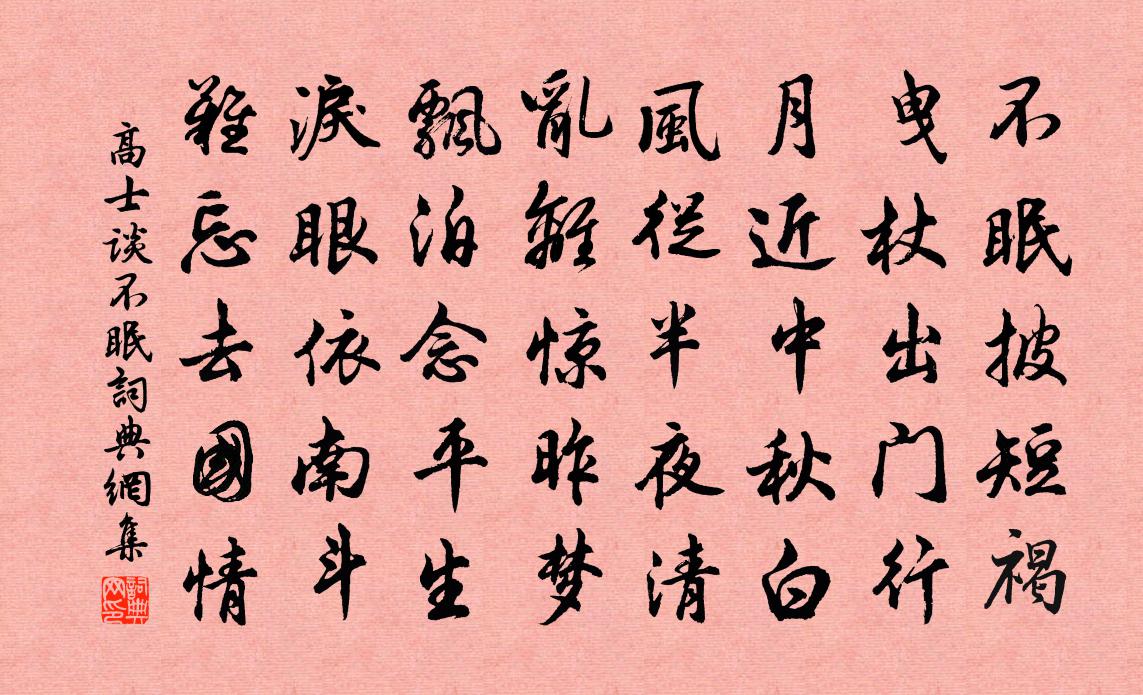 不眠披短褐
曳杖出门行
月近中秋白
風從半夜清
亂離惊昨梦
飄泊念平生
淚眼依南斗
難忘去國情
高士谈不眠詞典網集
詞典网印